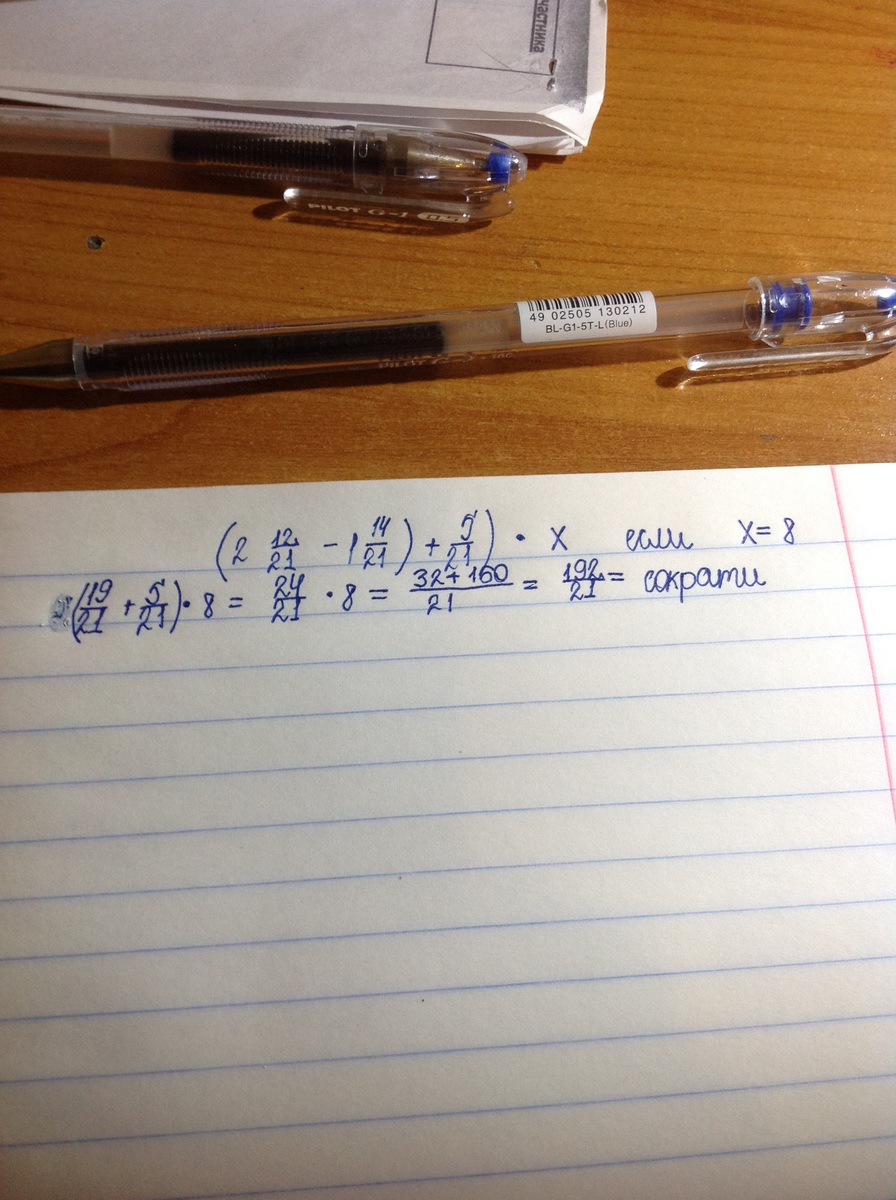 частника
PILOT G-1 0.5
49 02505 130212
BL-G1-5T-L (Blue)
(2 12/21 - 1 14/21) + 5/21) • x если x = 8
(19/21 + 5/21) • 8 = 24/21 • 8 = 32+160/21 = 192/21 = сократи